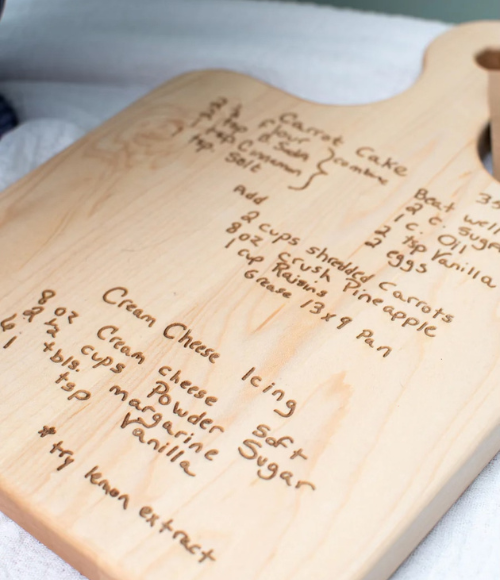 Carrot Cake
flour
tsp B. Soda
tsp Cinnamon
tsp. Salt
} combine
35
Beat well
2 c. Sugar
1 c. Oil
2 tsp Vanilla
2 eggs
Add
2 cups shredded Carrots
8 oz crush Pineapple
1 cup Raisins
Grease 13x9 Pan
Cream Cheese Icing
8 oz Cream cheese soft
2 ½ cups Powder Sugar
4 tbls. margarine
1 tsp Vanilla
*try lemon extract